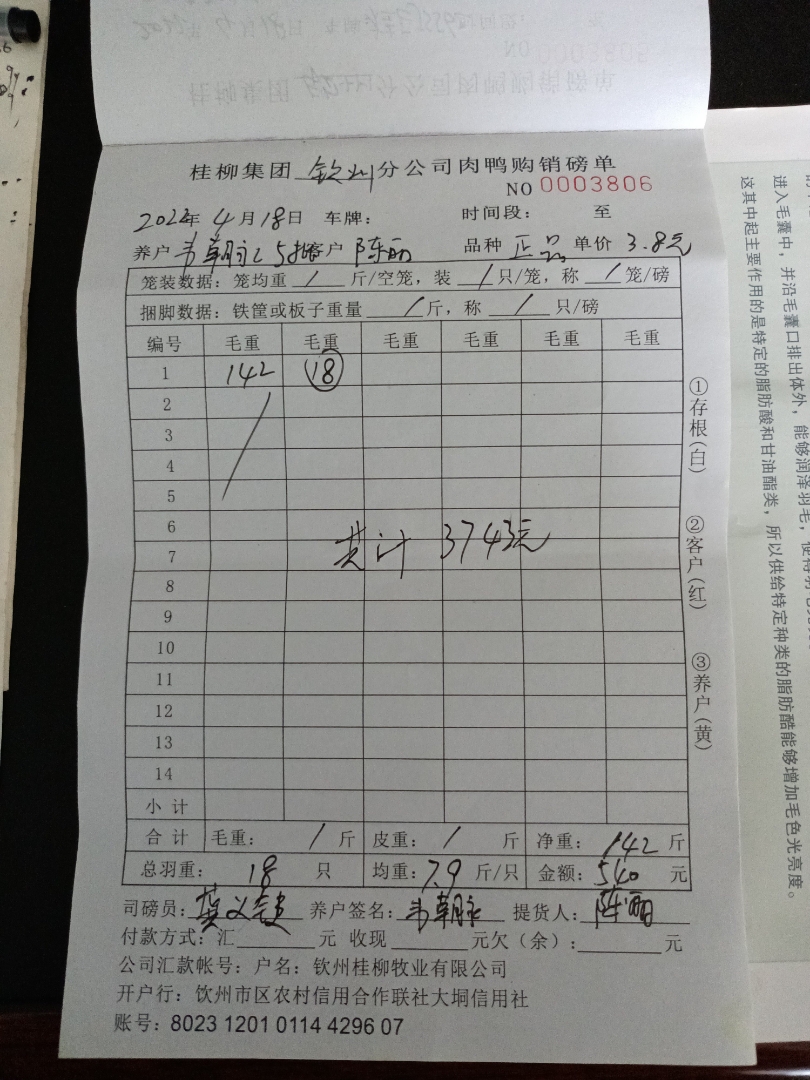 桂柳集团 钦州 分公司肉鸭购销磅单
NO 0003806
2022年 4月18日 车牌： 时间段： 至
养户 韦朝永 5批 客户 陈丽 品种 正品 单价 3.8元
笼装数据：笼均重 / 斤/空笼，装 / 只/笼，称 / 笼/磅
捆脚数据：铁筐或板子重量 / 斤，称 / 只/磅
编号 毛重 毛重 毛重 毛重 毛重 毛重
1 142 18
2
3
4
5
6
共计 3743元
7
8
9
10
11
12
13
14
小计
合计 毛重： / 斤 皮重： / 斤 净重： 142 斤
总羽重： 18 只 均重：7.9 斤/只 金额：540 元
司磅员： 养户签名：韦朝永 提货人：陈丽
付款方式：汇 元 收现 元欠（余）： 元
公司汇款帐号：户名：钦州桂柳牧业有限公司
开户行：钦州市区农村信用合作联社大垌信用社
账号：8023 1201 0114 4296 07
①存根(白)
②客户(红)
③养户(黄)
进入毛囊中，并沿毛囊口排出体外，能够润泽羽毛，使得羽毛
这其中起主要作用的是特定的脂肪酸和甘油酯类，所以供给特定种类的脂肪酸能够增加毛色光亮度。